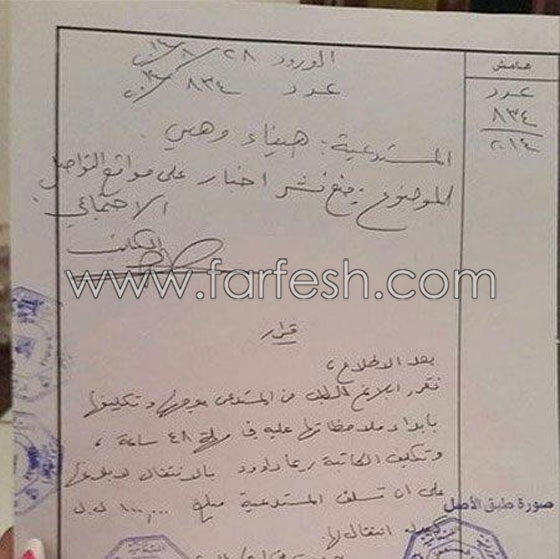 هامش
عدد
٨٣٤
٢٠١٤
الورود ٢٨/٨/١٤
عدد ٨٣٤/٢٠١٤
المستدعية: هيفاء وهبي.
الموضوع: منع نشر اخبار على مواقع التواصل
الاجتماعي.
www.farfesh.com
قرار
بعد الاطلاع،
نقرر ابلاغ الطلب من المستدعى بوجهها وتكليفها
بابداء ملاحظاتها عليه في مهلة ٤٨ ساعة،
وتكليف الكاتبة ريما داوود بالانتقال لابلاغها
على ان تسلف المستدعية مبلغ ١٠٠,٠٠٠ ل.ل
بدل انتقالها.
صورة طبق الأصل